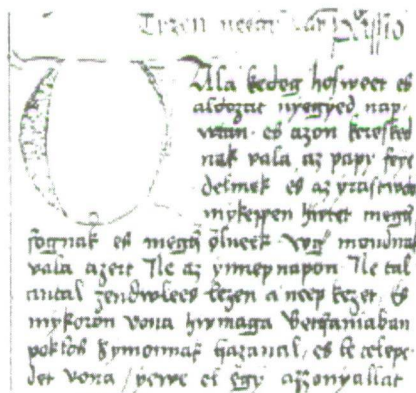 Tyzen neegy
Uala kedeg hosweet es
aldozat nyegyed nap
vtan. es azon keresked
nak vala az papy feye
delmek es az yrastwdo
mykeppen hwtet megh
fognak es megh ölneek vgy mondnak
vala azert Ne az ynnepnapon Ne tal
antal zendwlees legen a neep kezet. es
mykoron vona hw maga Bethaniaban
poklos symonnak hazanal, es le telepe
det vona / yewe el egy azzonyallat